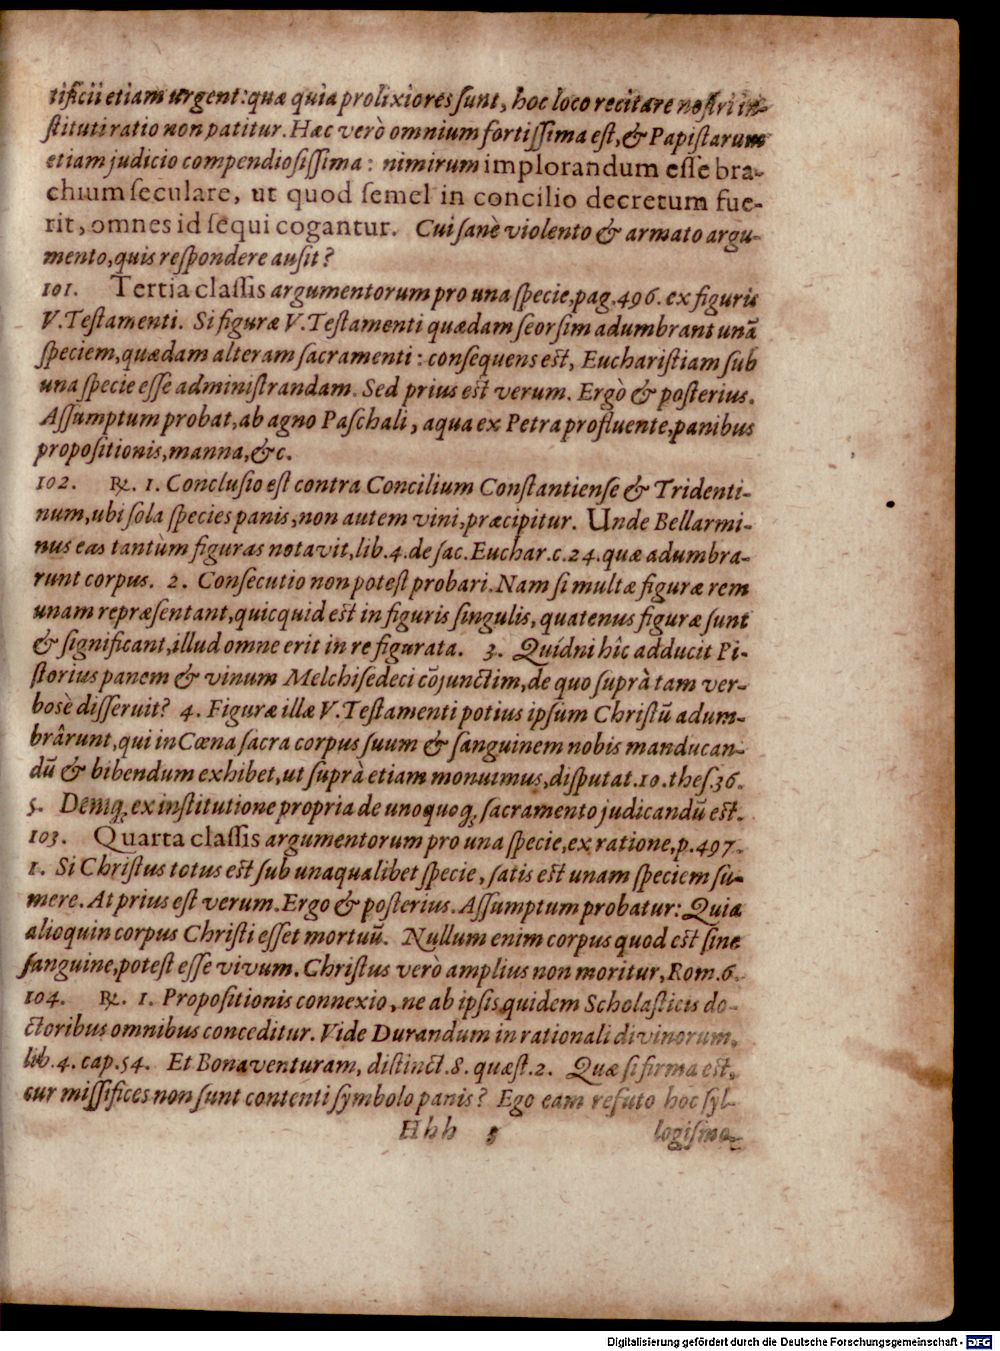 tificii etiam urgent: quæ quia prolixiores sunt, hoc loco recitare nostri in-
stituti ratio non patitur. Hæc verò omnium fortissima est, & Papistarum
etiam judicio compendiosissima: nimirum implorandum esse bra-
chium seculare, ut quod semel in concilio decretum fue-
rit, omnes id sequi cogantur. Cui sanè violento & armato argu-
mento, quis respondere ausit?
101. Tertia classis argumentorum pro una specie, pag. 496. ex figuris
V. Testamenti. Si figuræ V. Testamenti quædam seorsim adumbrant unā
speciem, quædam alteram sacramenti: consequens est, Eucharistiam sub
una specie esse administrandam. Sed prius est verum. Ergò & posterius.
Assumptum probat, ab agno Paschali, aqua ex Petra profluente, panibus
propositionis, manna, &c.
102. ℞. 1. Conclusio est contra Concilium Constantiense & Tridenti-
num, ubi sola species panis, non autem vini, præcipitur. Unde Bellarmi-
nus eas tantùm figuras notavit, lib. 4. de sac. Euchar. c. 24. quæ adumbra-
runt corpus. 2. Consecutio non potest probari. Nam si multæ figuræ rem
unam repræsentant, quicquid est in figuris singulis, quatenus figuræ sunt
& significant, illud omne erit in re figurata. 3. Quídni hîc adducit Pi-
storius panem & vinum Melchisedeci cōjunctim, de quo suprà tam ver-
bosè disseruit? 4. Figuræ illæ V. Testamenti potius ipsum Christū adum-
brârunt, qui in Cœna sacra corpus suum & sanguinem nobis manducan-
dū & bibendum exhibet, ut suprà etiam monuimus, disputat. 10. thes. 36.
5. Deniq; ex institutione propria de unoquoq; sacramento judicandū est.
103. Quarta classis argumentorum pro una specie, ex ratione, p. 497.
1. Si Christus totus est sub unaqualibet specie, satis est unam speciem su-
mere. At prius est verum. Ergo & posterius. Assumptum probatur: Quia
alioquin corpus Christi esset mortuū. Nullum enim corpus quod est sine
sanguine, potest esse vivum. Christus verò amplius non moritur, Rom. 6.
104. ℞. 1. Propositionis connexio, ne ab ipsis quidem Scholasticis do-
ctoribus omnibus conceditur. Vide Durandum in rationali divinorum,
lib. 4. cap. 54. Et Bonaventuram, distinct. 8. quæst. 2. Quæ si firma est,
cur missifices non sunt contenti symbolo panis? Ego eam refuto hoc syl-
Hhh 5 logismo.
Digitalisierung gefördert durch die Deutsche Forschungsgemeinschaft - DFG